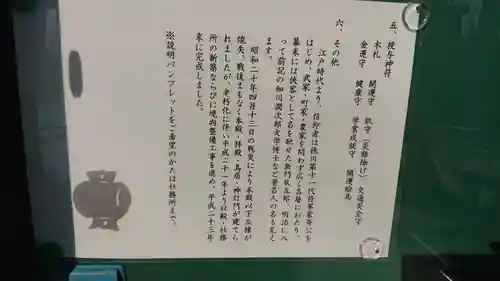 五、授与神符
木札 開運守 肌守(災難除け) 交通安全守
金運守 健康守 学業成就守 開運絵馬
六、その他
江戸時代より、信仰者は徳川第十一代将軍家斉公を
はじめ、武家・町家・農家を問わず広く各層にわたり、
幕末には侠客として名を馳せた新門辰五郎、明治に入
って前記の細川潤次郎文学博士など著名人の名も見え
ます。
昭和二十年四月十三日の戦災により本殿以下五棟が
焼失、戦後まもなく本殿、拝殿、鳥居、神灯門が建てら
れましたが、老朽化に伴い平成二十一年より社殿・社務
所の新築ならびに境内整備工事を進め、平成二十三年
末に完成しました。
※説明パンフレットをご希望のかたは社務所まで。